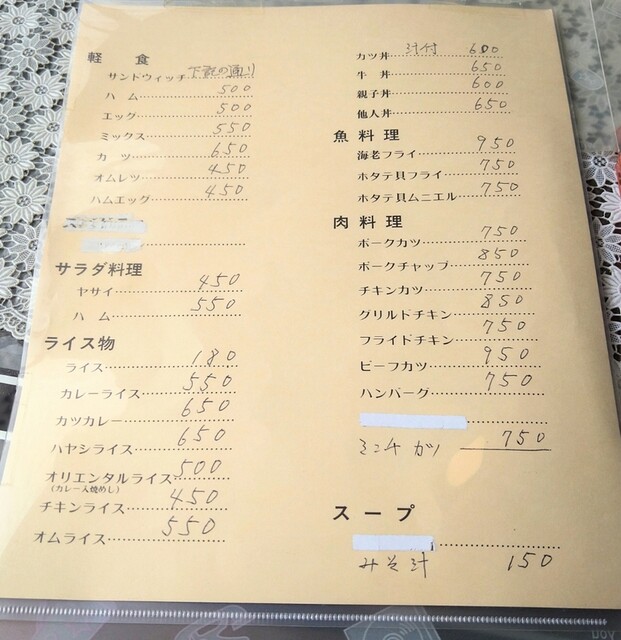 軽食
サントウィッチ 下記の通り
ハム 500
エッグ 500
ミックス 550
カツ 650
オムレツ 450
ハムエッグ 450
サラダ料理
ヤサイ 450
ハム 550
ライス物
ライス 180
カレーライス 550
カツカレー 650
ハヤシライス 650
オリエンタルライス 500
(カレー入焼めし)
チキンライス 450
オムライス 550
カツ丼 汁付 600
牛丼 650
親子丼 600
他人丼 650
魚料理
海老フライ 950
ホタテ貝フライ 750
ホタテ貝ムニエル 750
肉料理
ポークカツ 750
ポークチャップ 850
チキンカツ 750
グリルドチキン 850
フライドチキン 750
ビーフカツ 950
ハンバーグ 750
ミンチカツ 750
スープ
みそ汁 150